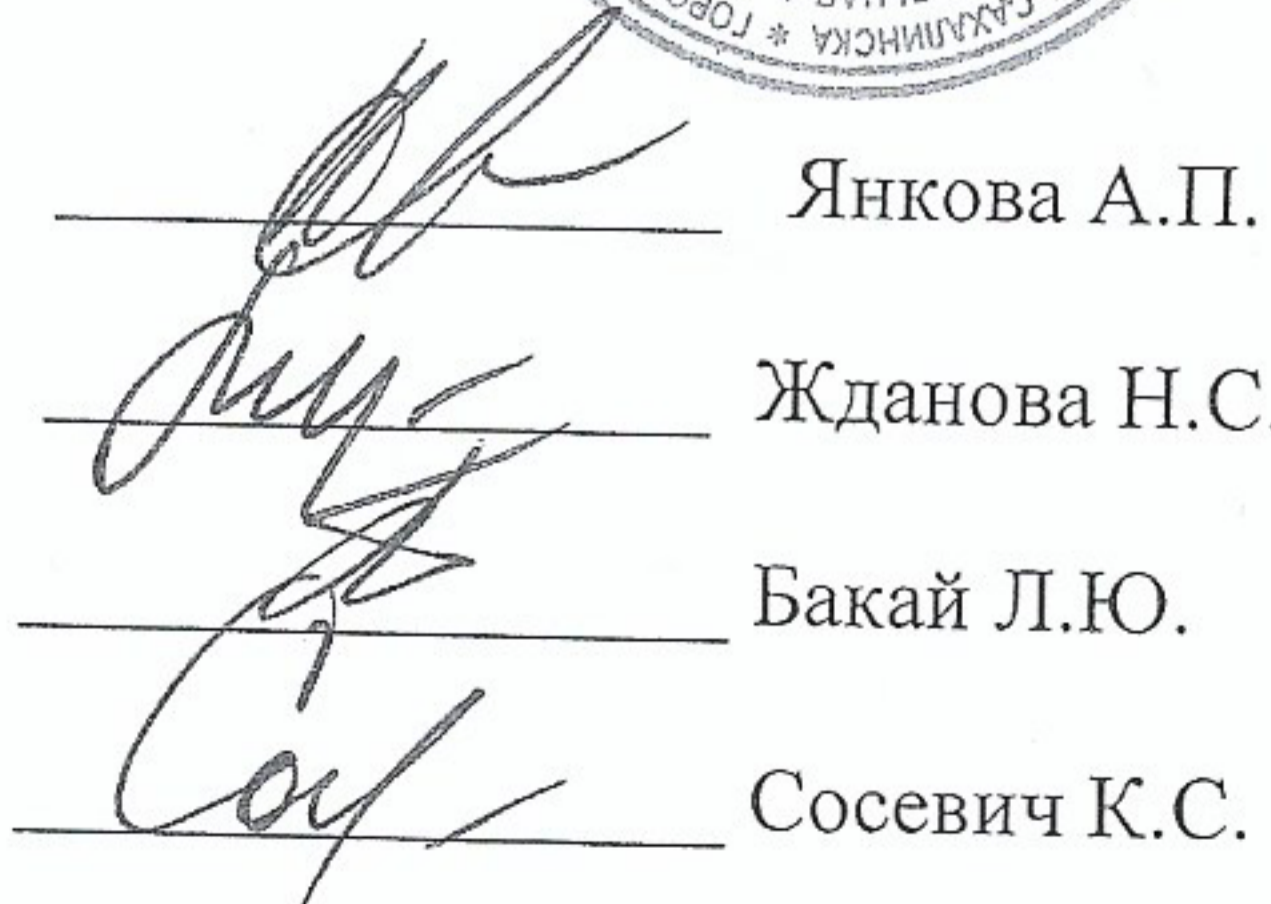 САХАЛИНСКА * ГОРО
Янкова А.П.
Жданова Н.С.
Бакай Л.Ю.
Сосевич К.С.